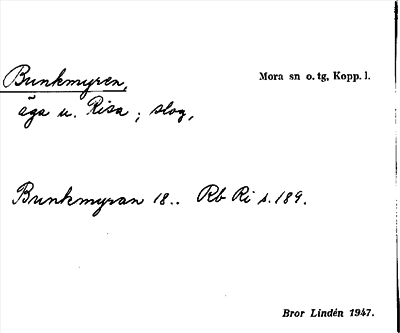 Bunkmyren,
Mora sn o. tg, Kopp. l.
äga u. Risa ; slog,
Bunkmyran 18.. Rb Ri s. 189.
Bror Lindén 1947.